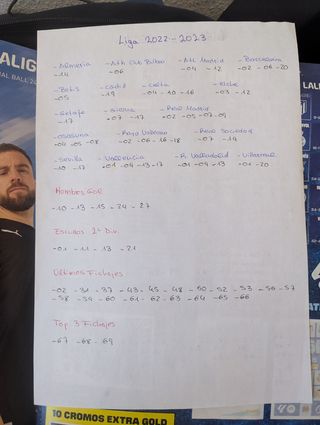 Liga 2022-2023
-Almeria -Ath Club Bilbao -Atl. Madrid -Barcelona
-14 -06 -04 -12 -02 -06 -20
-Betis -Cadiz -Celta -Elche
-05 -19 -01 -10 -16 -03 -12
-Getafe -Girona -Real Madrid
-17 -07 -17 -02 -05 -07 -09
-Osasuna -Rayo Vallecano -Real Sociedad
-04 -05 -08 -02 -06 -16 -18 -07 -14
-Sevilla -Valencia -R. Valladolid -Villarreal
-10 -17 -01 -04 -13 -17 -01 -04 -13 -01 -20
Hombres Gol
-10 -13 -15 -24 -27
Escudos 2ª Div.
-01 -11 -13 -21
Ultimos Fichajes
-02 -31 -37 -43 -45 -48 -50 -52 -53 -56 -57
-58 -59 -60 -61 -62 -63 -64 -65 -66
Top 3 Fichajes
-67 -68 -69
10 CROMOS EXTRA GOLD